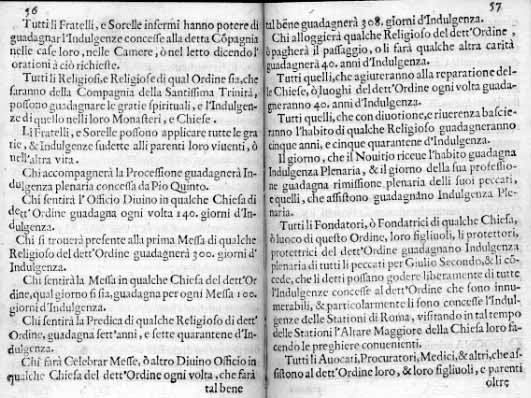 56
Tutti li Fratelli, e Sorelle infermi hanno potere di
guadagnar l'Indulgenze concesse alla detta Cõpagnia
nelle case loro, nelle Camere, ò nel letto dicendo l'
orationi à ciò richieste.
Tutti li Religiosi, e Religiose di qual Ordine sia, che
saranno della Compagnia della Santissima Trinità,
possono guadagnare le gratie spirituali, e l'Indulgen-
ze di quello nelli loro Monasteri, e Chiese.
Li Fratelli, e Sorelle possono applicare tutte le gra
tie, & Indulgenze sudette alli parenti loro viuenti, ò
nell'altra vita.
Chi accompagnerà la Processione guadagnerà In-
dulgenza plenaria concessa da Pio Quinto.
Chi sentirà l'Officio Diuino in qualche Chiesa di
dett'Ordine guadagna ogni volta 140. giorni d'In-
dulgenza.
Chi si trouerà presente alla prima Messa di qualche
Religioso del dett'Ordine guadagnerà 300. giorni d'
Indulgenza.
Chi sentirà la Messa in qualche Chiesa del dett'Or
dine, qual giorno si sia, guadagna per ogni Messa 100.
giorni d'Indulgenza.
Chi sentirà la Predica di qualche Religioso di dett'
Ordine, guadagna sett'anni, e sette quarantene d'In-
dulgenza.
Chi farà Celebrar Messe, ò altro Diuino Officio in
qualche Chiesa del dett'Ordine ogni volta, che farà
tal bene
57
tal bène guadagnerà 308. giorni d'Indulgenza.
Chi alloggierà qualche Religioso del dett'Ordine,
ò pagherà il passaggio, o li farà qualche altra carità
guadagnerà 40. anni d'Indulgenza.
Tutti quelli, che agiuteranno alla reparatione del-
le Chiese, ò luoghi del dett'Ordine ogni volta guada-
gneranno 40. anni d'Indulgenza.
Tutti quelli, che con diuotione, e riuerenza bascie-
ranno l'habito di qualche Religioso guadagneranno
cinque anni, e cinque quarantene d'Indulgenza.
Il giorno, che il Nouitio riceue l'habito guadagna
Indulgenza Plenaria, & il giorno della sua professio-
ne guadagna rimissione plenaria delli suoi peccati,
e quelli, che assistono guadagnàno Indulgenza Ple-
naria.
Tutti li Fondatori, ò Fondatrici di qualche Chiesa,
ò luoco di questo Ordine, loro figliuoli, li protettori,
protettrici del dett'Ordine guadagnano Indulgenza
plenaria di tutti li peccati per Giulio Secondo, & li cõ-
cede, che li detti possano godere liberamente di tutte
l'Indulgenze concesse al dett'Ordine che sono innu-
merabili, & particolarmente li sono concesse l'Indul-
genze delle Stationi di Roma, visitando in tal tempo
delle Stationi l'Altare Maggiore della Chiesa loro fa-
cendo le preghiere conuenienti.
Tutti li Auocati, Procuratori, Medici, & altri, che as-
sistono al dett'Ordine loro, & loro figliuoli, e parenti
oltre